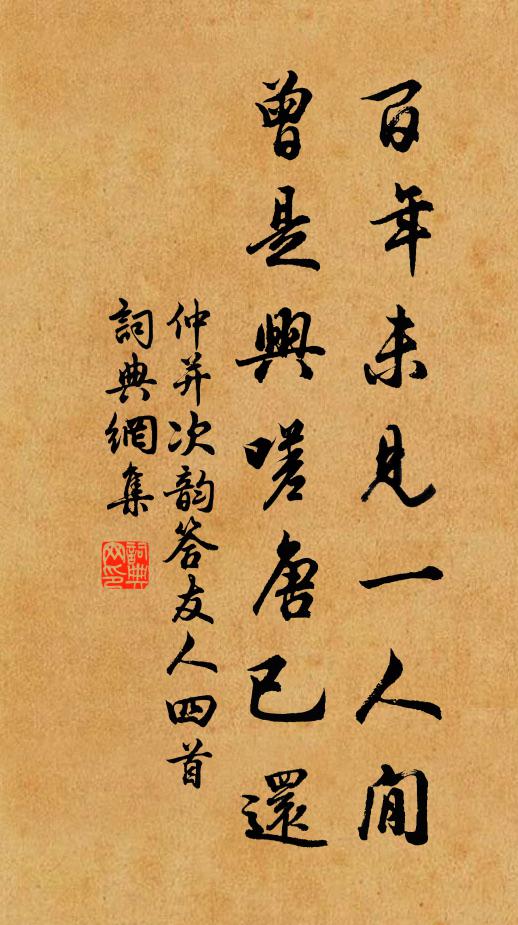 百年未見一人閒
曾是興嗟唐已還
仲并次韵答友人四首
詞典網集
詞典網印